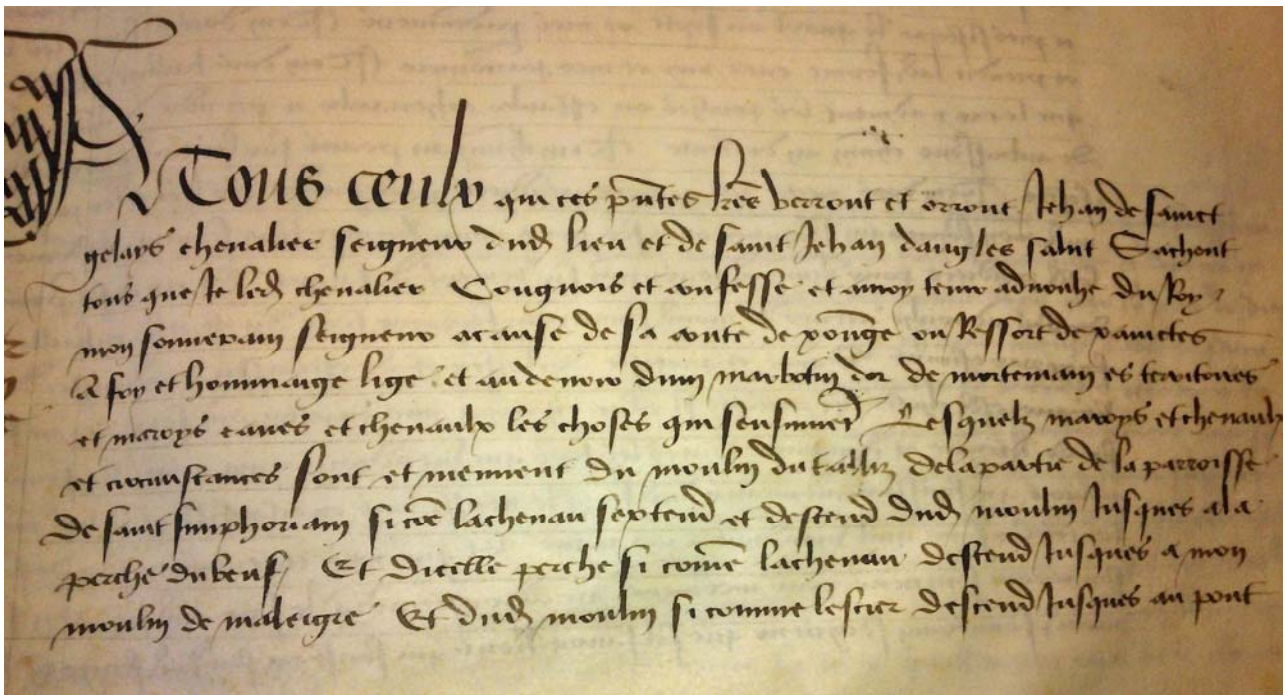 A Tous ceulx qui ces pñtes lrẽs verront et orront Jehan de sainct
gelays chevalier seigneur dud lieu et de saint Jehan dangles salut Sachent
tous que Je led chevalier Congnois et confesse et advoy tenir du Roy
mon souverain seigneur a cause de sa conte de xõnge ou Ressort de xainctes
A foy et hommaige lige et au devoir dun marbotin dor de mortemain es territoires
et maroys eaues et chenaulx les choses qui sensuivẽt Lesquelz maroys et chenaulx
et circunstances sont et meuvent du moulin du de la partie de la parroisse
de saint simphoriam si cõe lachenau sextend et descend dud moulin Jusques a la
perche du beuf Et dicelle perche si comẽ lachenau descend Jusques a mon
moulin de maleigre Et dud moulin si comme lestier descend Jusques au pont